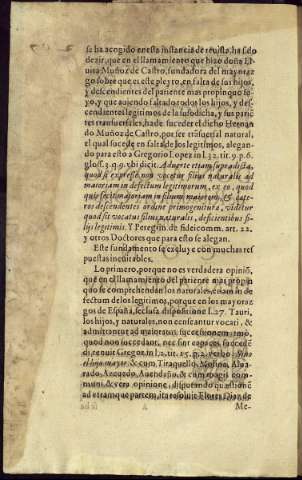 se ha acogido en esta instancia de revista, ha sido
dezir, que en el llamamiento que hizo doña Lu
Muñoz de Castro, fundadora del mayoraz
go sobre que es este pleyto, en falta de sus hijos,
y descendientes del pariente mas propinquo su
yo, y que auiendo faltado todos los hijos, y des-
cendientes legitimos de la susodicha, y sus parie
tes transuersales, hade suceder el dicho Hernan
do Muñoz de Castro, por ser trãsuersal natural,
el qual sucede en falta de los legitimos, alegan-
do para esto a Gregorio Lopez in l.
quod si expressè non vocetur filius naturalis ad
maioriam in defectum legitimorum, ex eo, quod
quis fecit maioriam in filium maiorem, & cæte-
ros descendentes ordine primogenitura, videtur
quod sit vocatus filius naturalis, deficientibus fi-
lijs legitimis. Y Peregrin. de fideicomm. art. 22.
y otros Doctores que para esto se alegan.
Este fundamento se excluye con muchas res
puestas ineuitables.
Lo primero, porque no es verdadera opiniõ,
que en el llamamiento del pariente mas propin
quo se comprehendan los naturales, etiam in de
fectum de los legitimos, porque en los mayoraz
gos de España, seclusa dispositione l. 27. Tauri,
los hijos, y naturales, non censeantur vocati, &
admittantur ad maiorem successionem, imò,
quod non succedant, nec sint capaces succede
di, tenuit Gregor. in l. 2. tit. 15. p. 2. verbo:
& cum Tiraquello, Molino, Alua-
rado, Azeuedo, Auendaño, & cum magis com-
muni, & vera opinione, disputando quæstionẽ
ad vtramque partem, ita resoluit Flores Diaz de
A
Me-